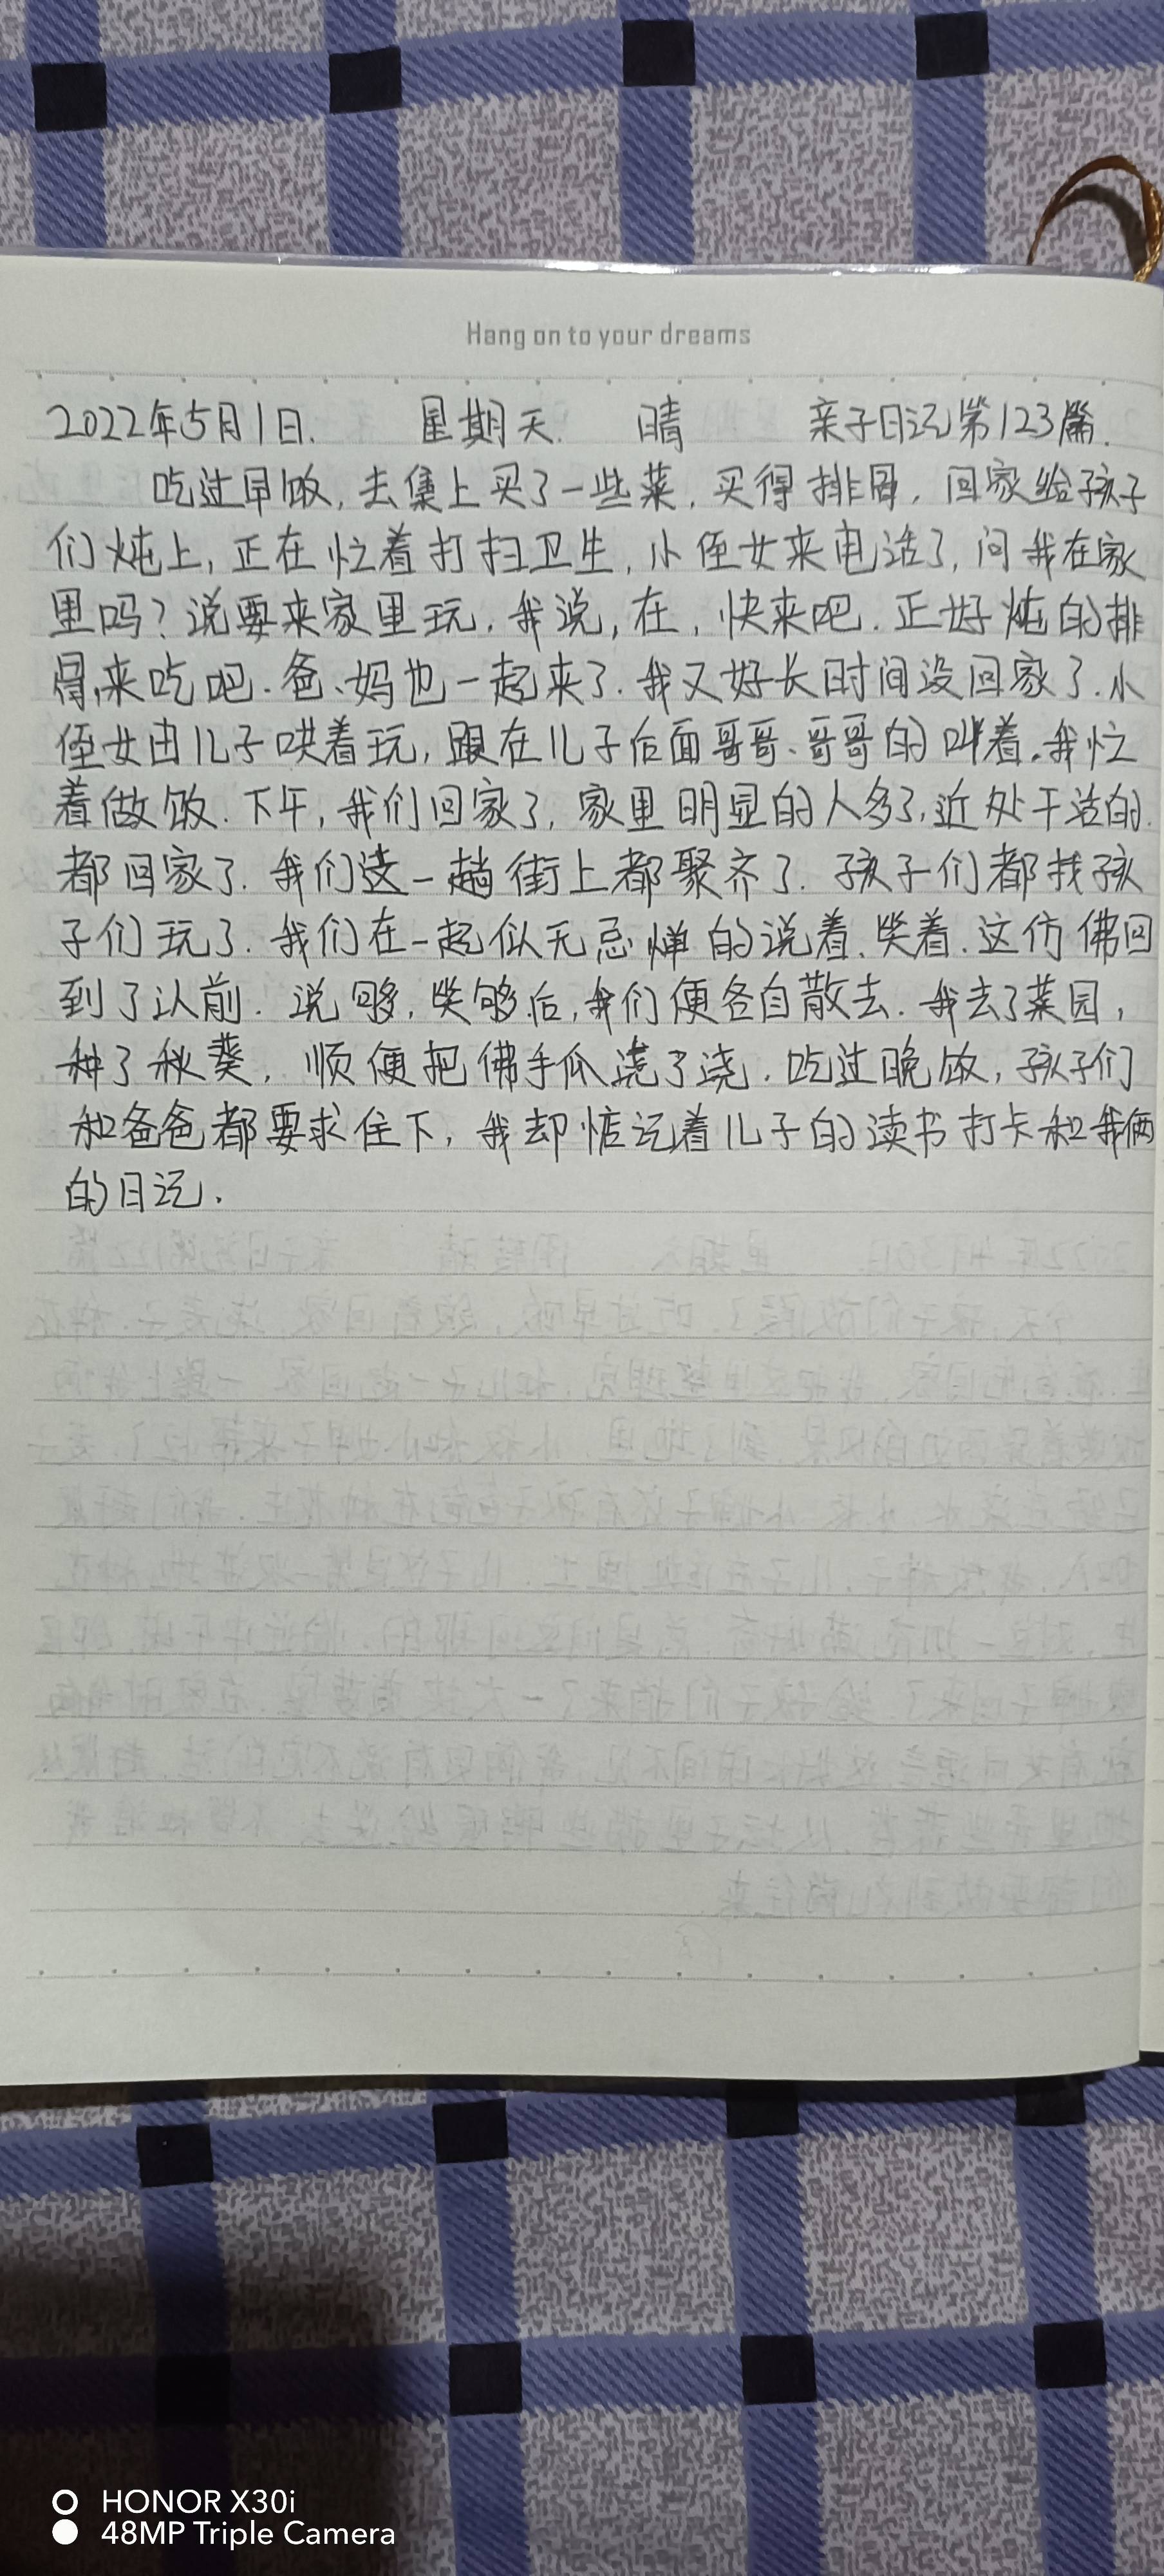 Hang on to your dreams
2022年5月1日. 星期天. 晴 亲子日记第123篇.
吃过早饭,去集上买了一些菜,买得排骨,回家给孩子
们炖上,正在忙着打扫卫生,小侄女来电话了,问我在家
里吗?说要来家里玩.我说,在,快来吧.正好炖的排
骨,来吃吧.爸、妈也一起来了.我又好长时间没回家了.小
侄女由儿子哄着玩,跟在儿子后面哥哥、哥哥的叫着.我忙
着做饭.下午,我们回家了,家里明显的人多了,近处干活的.
都回家了.我们这一趟街上都聚齐了.孩子们都找孩
子们玩了.我们在一起似无忌惮的说着、笑着.这仿佛回
到了以前.说够,笑够后,我们便各自散去.我去了菜园,
种了秋葵,顺便把佛手瓜浇了浇.吃过晚饭,孩子们
和爸爸都要求住下,我却惦记着儿子的读书打卡和我俩
的日记.
HONOR X30i
48MP Triple Camera